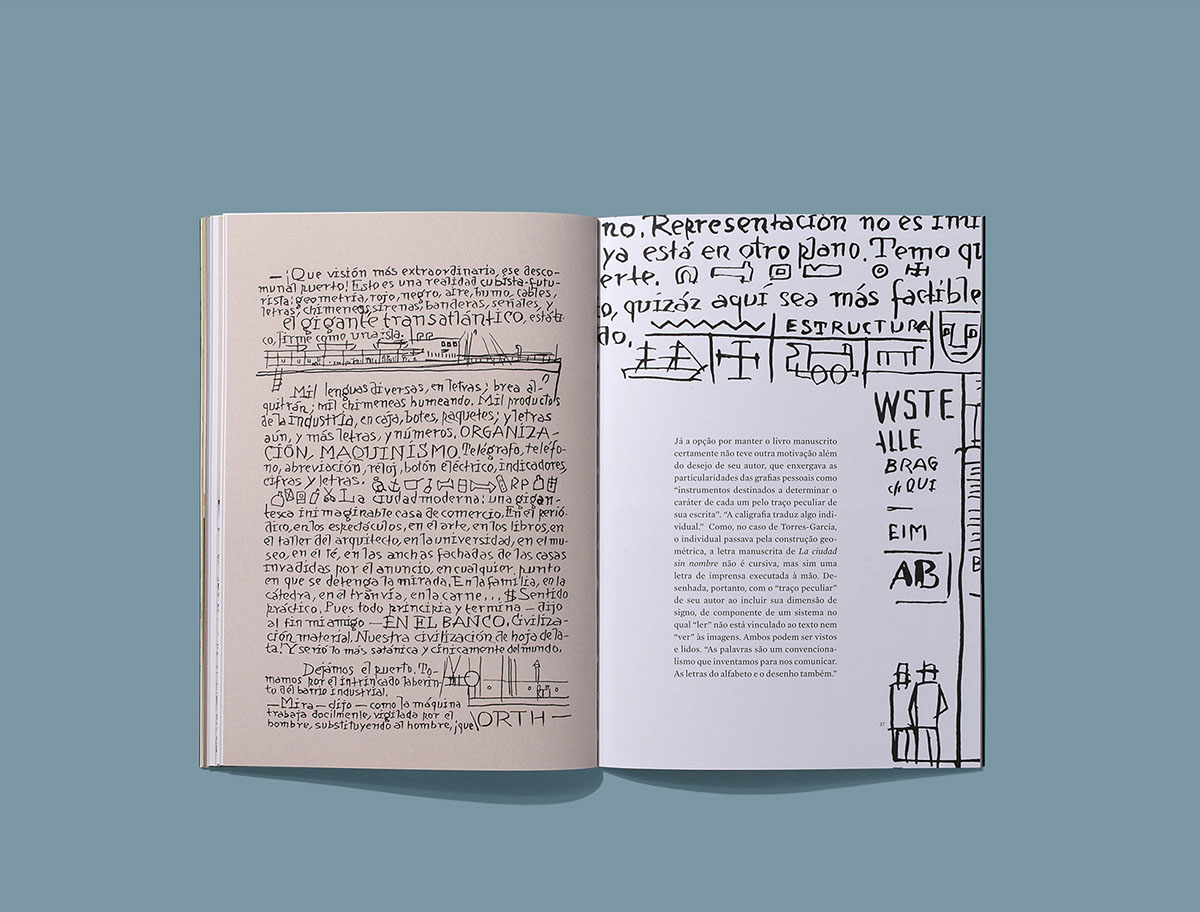 — ¡Que visión más extraordinaria, ese desco-
munal puerto! Esto es una realidad cubista-futu-
rista: geometría, rojo, negro, aire, humo, cables,
letras, chimeneas, sirenas, banderas, señales, y
el gigante transatlántico, estáti-
co, firme como una isla.
Mil lenguas diversas, en letras; brea al-
quitrán; mil chimeneas humeando. Mil productos
de la industria, en caja, botes, paquetes; y letras
aún, y más letras, y números. ORGANIZA-
CIÓN, MAQUINISMO. Telégrafo, teléfo-
no, abreviación, reloj, botón eléctrico, indicadores,
cifras y letras. RP
La ciudad moderna: una gigan-
tesca inimaginable casa de comercio. En el perió-
dico, en los espectáculos, en el arte, en los libros, en
el taller del arquitecto, en la universidad, en el mu-
seo, en el té, en las anchas fachadas de las casas
invadidas por el anuncio, en cualquier punto
en que se detenga la mirada. En la familia, en la
cátedra, en el tranvía, en la carne... $ Sentido
práctico. Pues todo principia y termina — dijo
al fin mi amigo — EN EL BANCO. Civiliza-
ción material. Nuestra civilización de hoja de la-
ta! Y serió lo más satánica y cínicamente del mundo.
Dejámos el puerto. To-
mamos por el intrincado laberin-
to del barrio industrial.
— Mira — dijo — como la máquina
trabaja docilmente, vigilada por el
hombre, substituyendo al hombre, ¡que
ORTH —
no. Representación no es imi
ya está en otro plano. Temo qu
erte.
o, quizáz aquí sea más factible
do.
ESTRUCTURA
WSTE
ALLE
BRAG
QUI
EIM
AB
B
Já a opção por manter o livro manuscrito
certamente não teve outra motivação além
do desejo de seu autor, que enxergava as
particularidades das grafias pessoais como
“instrumentos destinados a determinar o
caráter de cada um pelo traço peculiar de
sua escrita”. “A caligrafia traduz algo indi-
vidual.” Como, no caso de Torres-García,
o individual passava pela construção geo-
métrica, a letra manuscrita de La ciudad
sin nombre não é cursiva, mas sim uma
letra de imprensa executada à mão. De-
senhada, portanto, com o “traço peculiar”
de seu autor ao incluir sua dimensão de
signo, de componente de um sistema no
qual “ler” não está vinculado ao texto nem
“ver” às imagens. Ambos podem ser vistos
e lidos. “As palavras são um convenciona-
lismo que inventamos para nos comunicar.
As letras do alfabeto e o desenho também.”
37